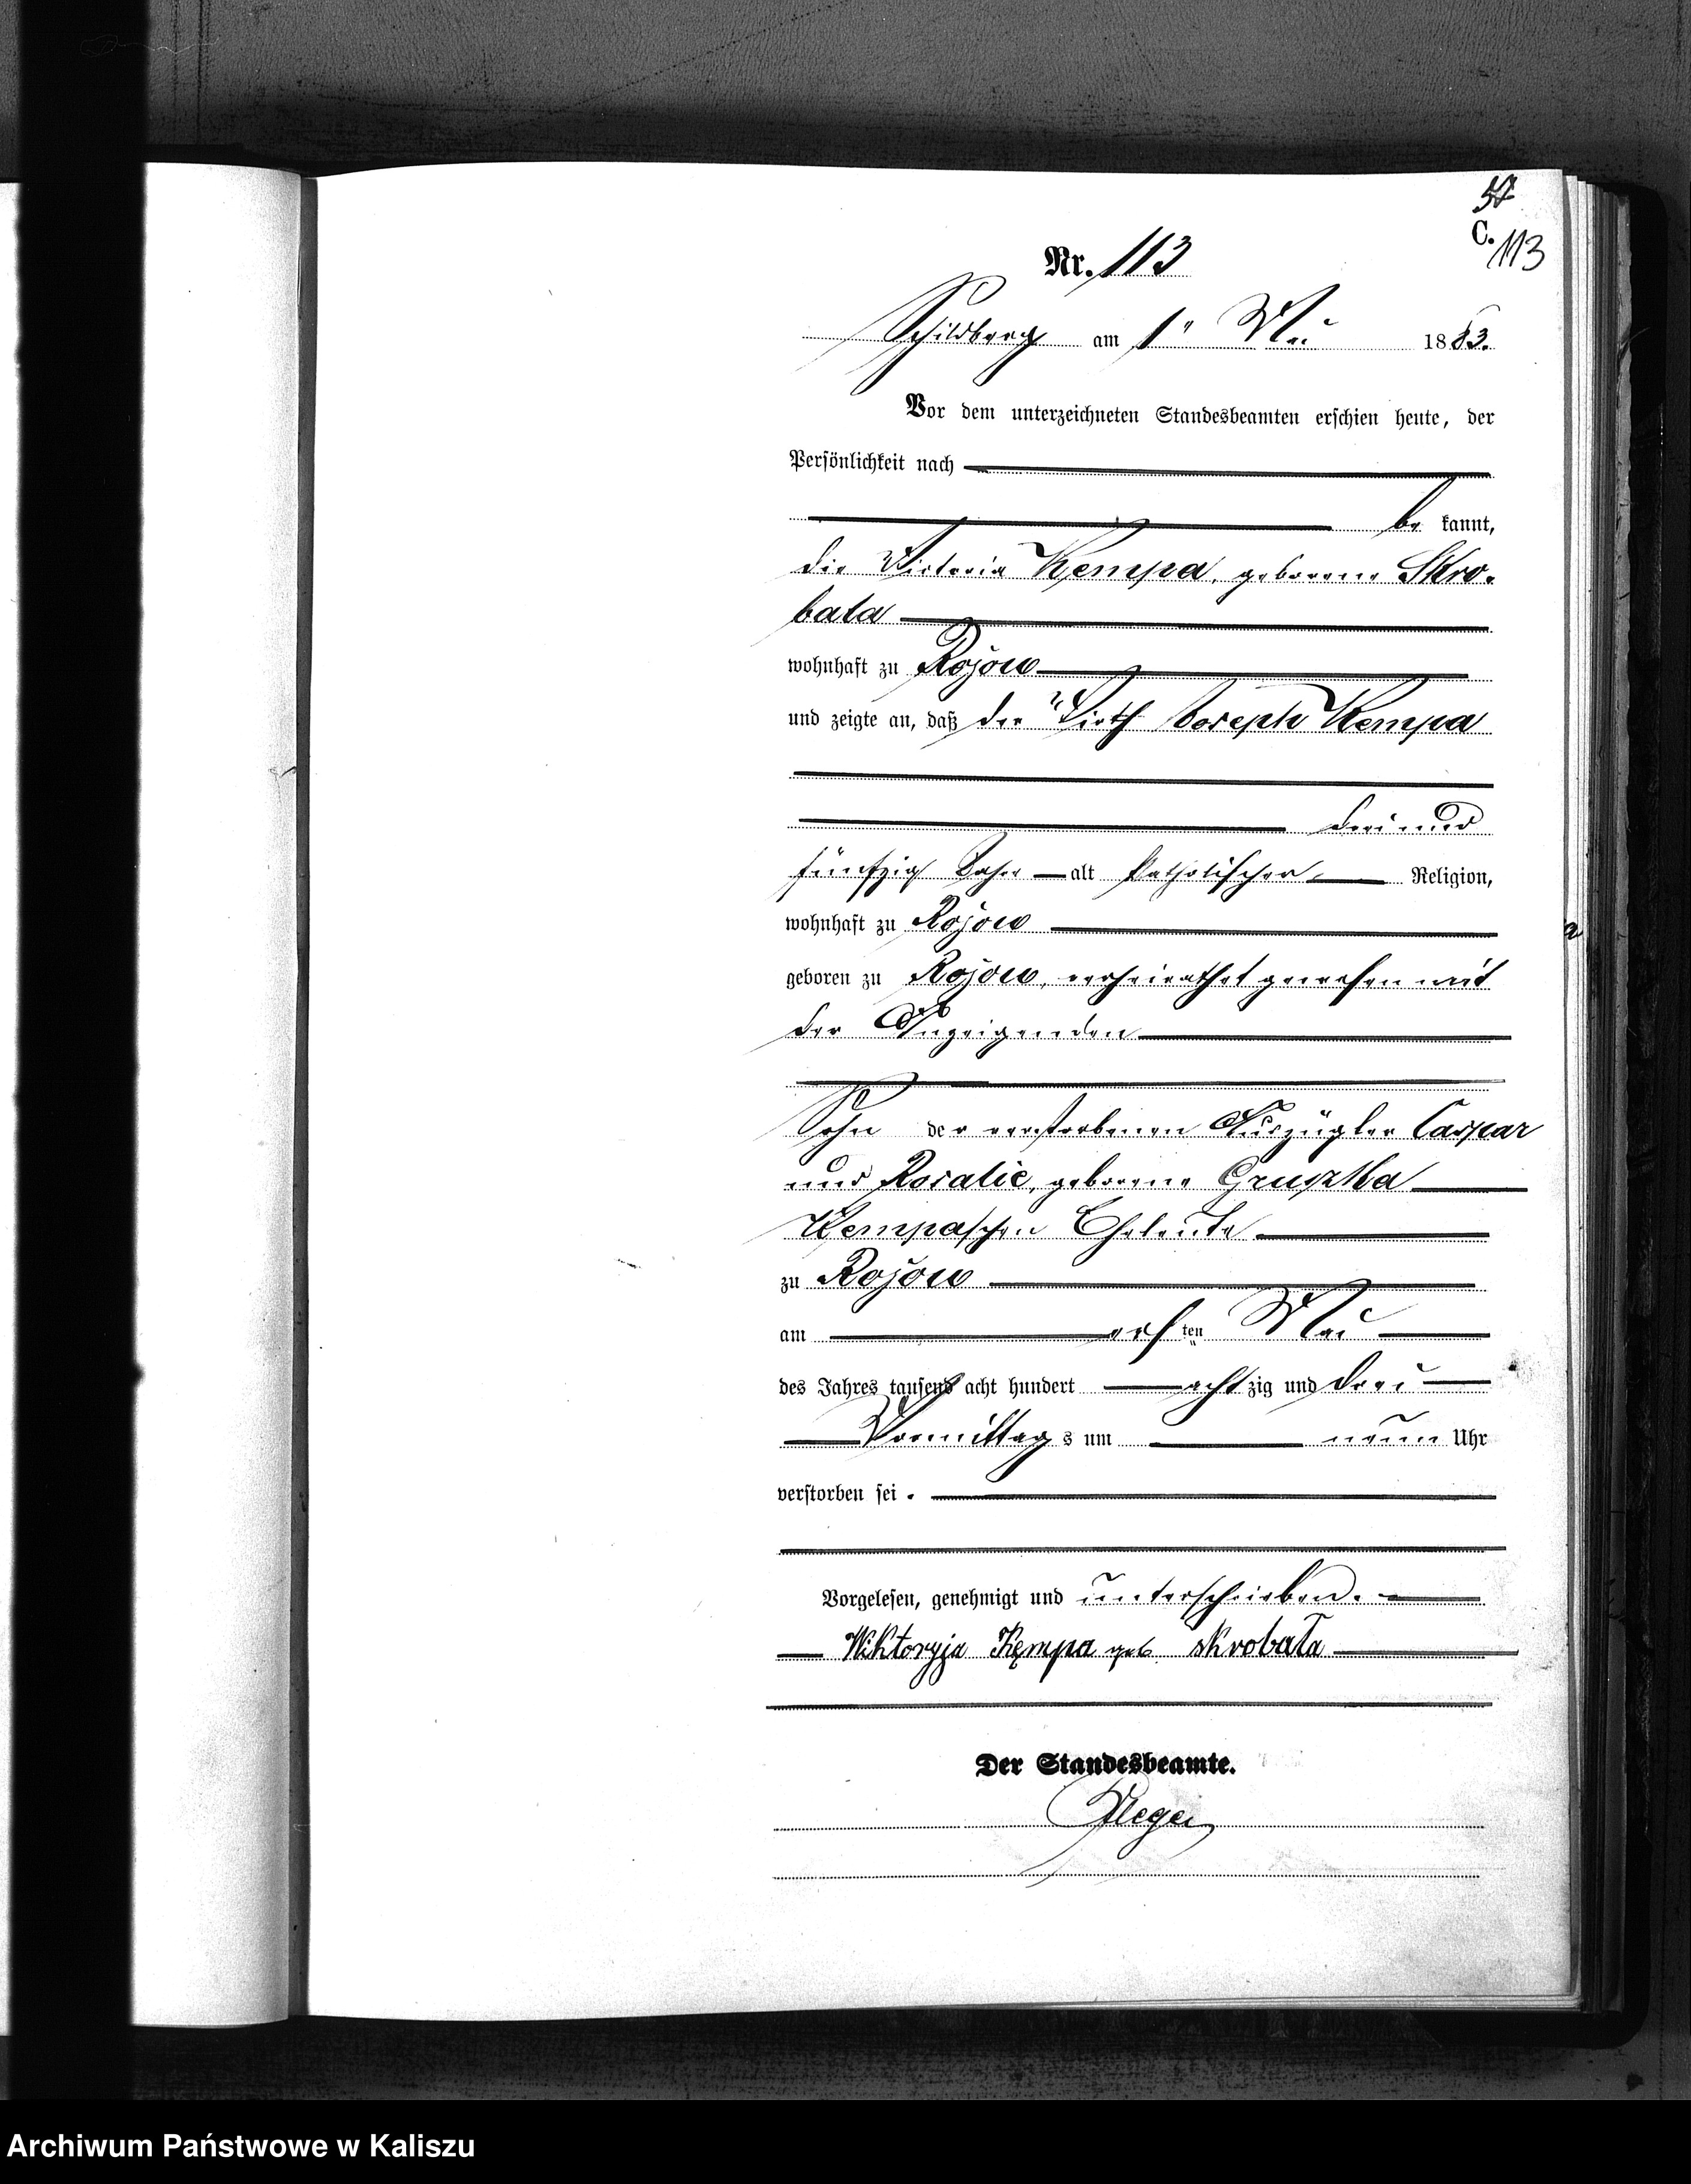 57
C.
113
Nr. 113
Schildberg am 1" Mai 1883.
Vor dem unterzeichneten Standesbeamten erschien heute, der
Persönlichkeit nach
be kannt,
die Victoria Kempa, geborene Skro-
bata
wohnhaft zu Rojow
und zeigte an, daß der Wirth Joseph Kempa
drei und
fünfzig Jahre alt katholischer Religion,
wohnhaft zu Rojow
geboren zu Rojow, verheirathet gewesen mit
der Anzeigenden
Sohn der verstorbenen Auszügler Caspar
und Rosalie, geborene Gruszka
Kempaschen Eheleute
zu Rojow
am ersten Mai
des Jahres tausend acht hundert achtzig und drei
Vormittags um neun Uhr
verstorben sei.
Vorgelesen, genehmigt und unterschrieben.
Wiktoryja Kęmpa geb. Skrobała
Der Standesbeamte.
Archiwum Państwowe w Kaliszu